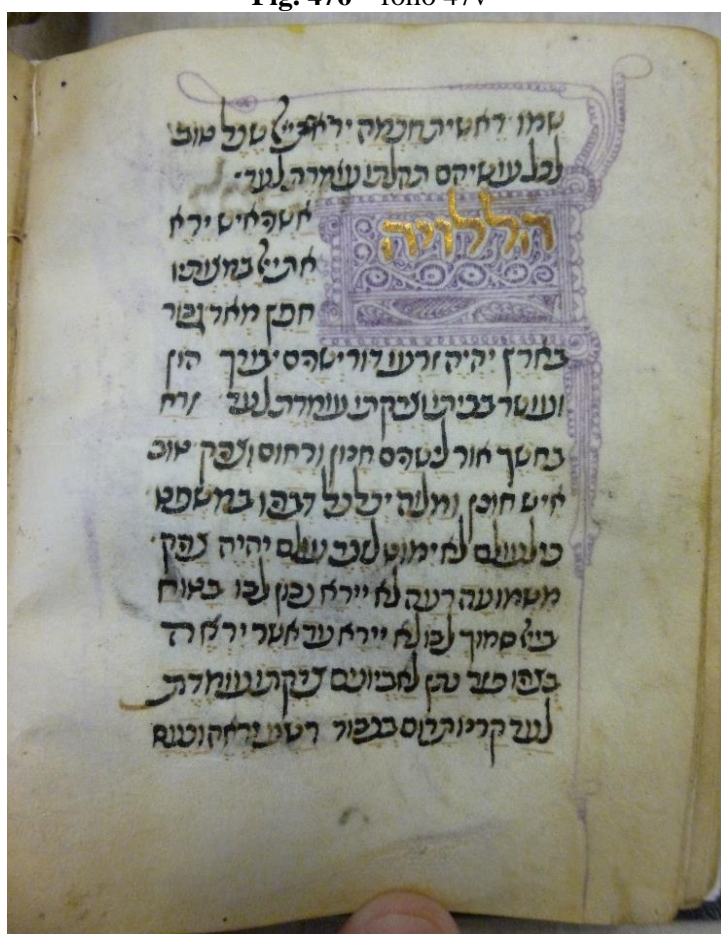 Fig. 476 folio 47v
שמו ראשית חכמה יראת ייי שכל טוב
לכל עושיהם תהלתו עומדת לעד
הללויה
אשרי איש ירא
את ייי במצותיו
חפץ מאד גבור
בארץ יהיה זרעו דור ישרים יבורך הון
ועושר בביתו וצדקתו עומדת לעד זרח
בחשך אור לישרים חנון ורחום וצדיק טוב
איש חונן ומלוה יכלכל דבריו במשפט
כי לעולם לא ימוט לזכר עולם יהיה צדיק
משמועה רעה לא יירא נכון לבו בטוח
בייי סמוך לבו לא יירא עד אשר יראה
בצריו פזר נתן לאביונים צדקתו עומדת
לעד קרנו תרום בכבוד רשע יראה וכעס